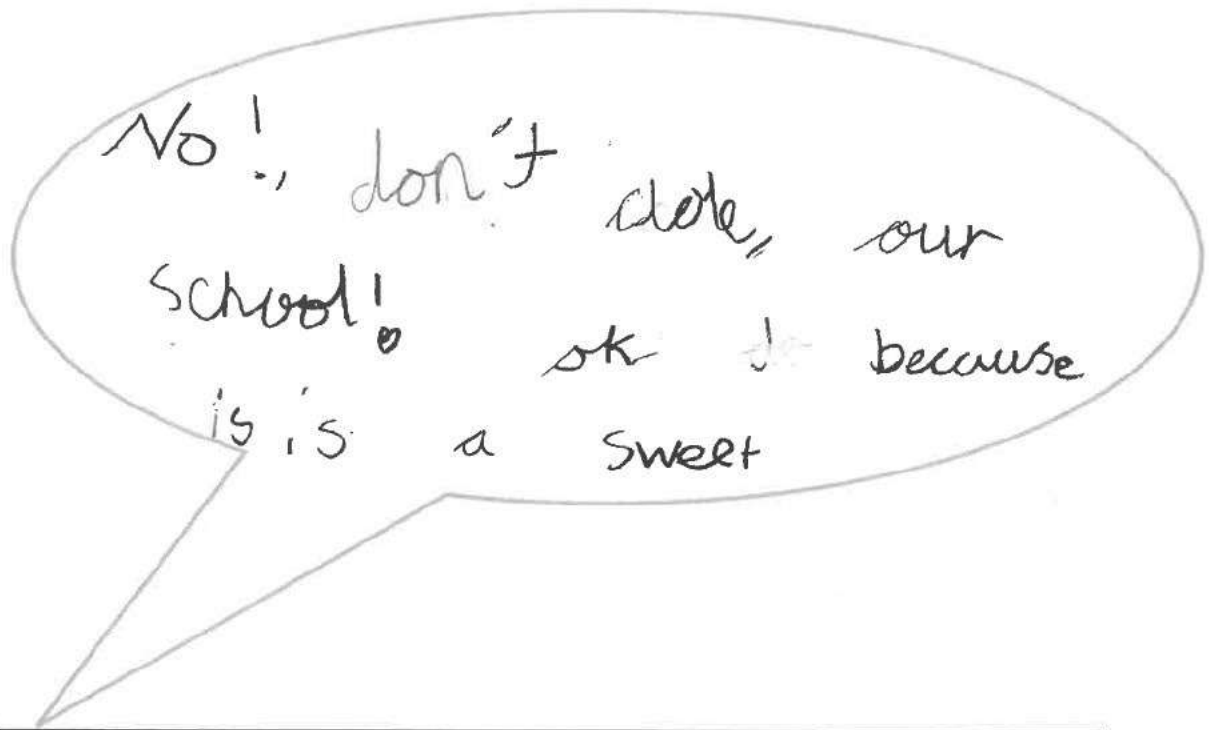 No!, don't close, our
school! ok because
is is a sweet